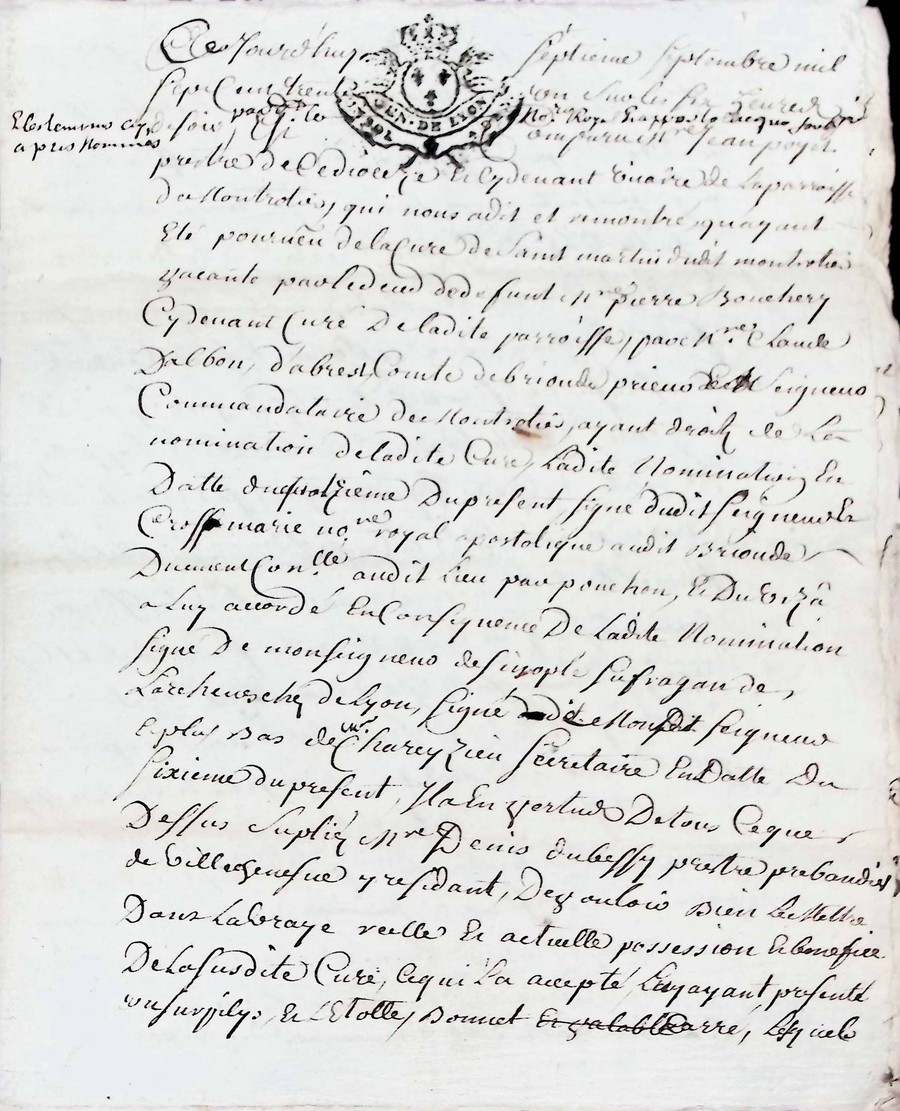 Cejourd'huy septieme septembre mil
sept cent trente un sur les six heures
GEN. DE LYON
Et les temoins cy
apres nommés
de soir, par dt le No.re Royal Et apostolique soubsigné
comparu M.re Jean poyet
prestre de ce dioceze et cydevant vicaire de la parroisse
de Montrotier, qui nous a dit et remontré, qu'ayant
Eté pourveu de la Cure de Saint martin dudit montrotier
vacante par le deced de defunt M.re pierre Bouchery
Cydevant Curé De ladite parroisse, par M.re Claude
Dalbon, Comte de brioude prieur et Seigneur
Commandataire de Montrotier, ayant droit de La
nomination de ladite Cure, Ladite Nomination En
Datte du quatrième Du present signé dudit seigneur Et
Crossmarie no.re royal apostolique audit Brioude
Duement Con.llé audit lieu par ponchon, Et Du viza
a Luy accordé En Consequence De Ladite Nomination
signé De monseigneur de sinople sufragan de
Larchevesché de Lyon, signé de Mondit seigneur
et plus Bas de M.r Chareyzieu secretaire En Datte Du
sixieme du present, Il a En vertu De tous Ceque
Dessus suplié M.re Denis dubessy prestre prebandier
de Villechenesve y residant, De vouloir Bien Le Mettre
Dans La vraye reelle Et actuelle possession Et benefice
De la susdite Cure, ce qui l'a accepté, Luy ayant presenté
un surplys, Et L'Etolle, Bonnet carré, Lesquels